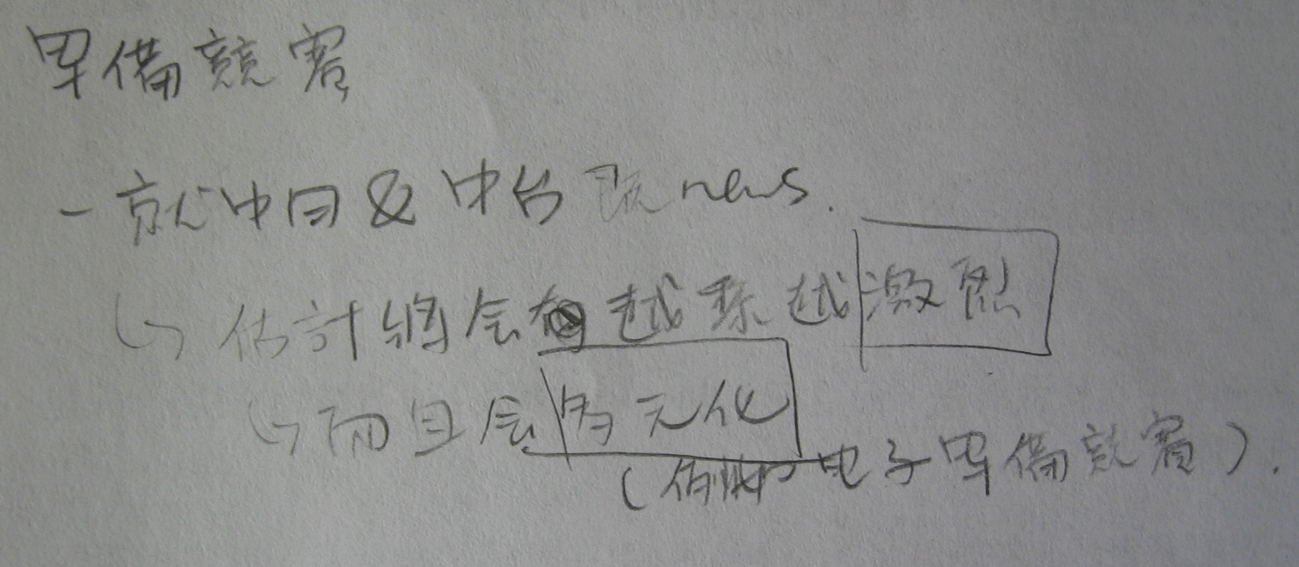 軍備競賽
- 就中日 & 中台 既 news.
↳ 估計將会越來越激烈
↳ 而且会多元化
(例如 电子軍備競賽).